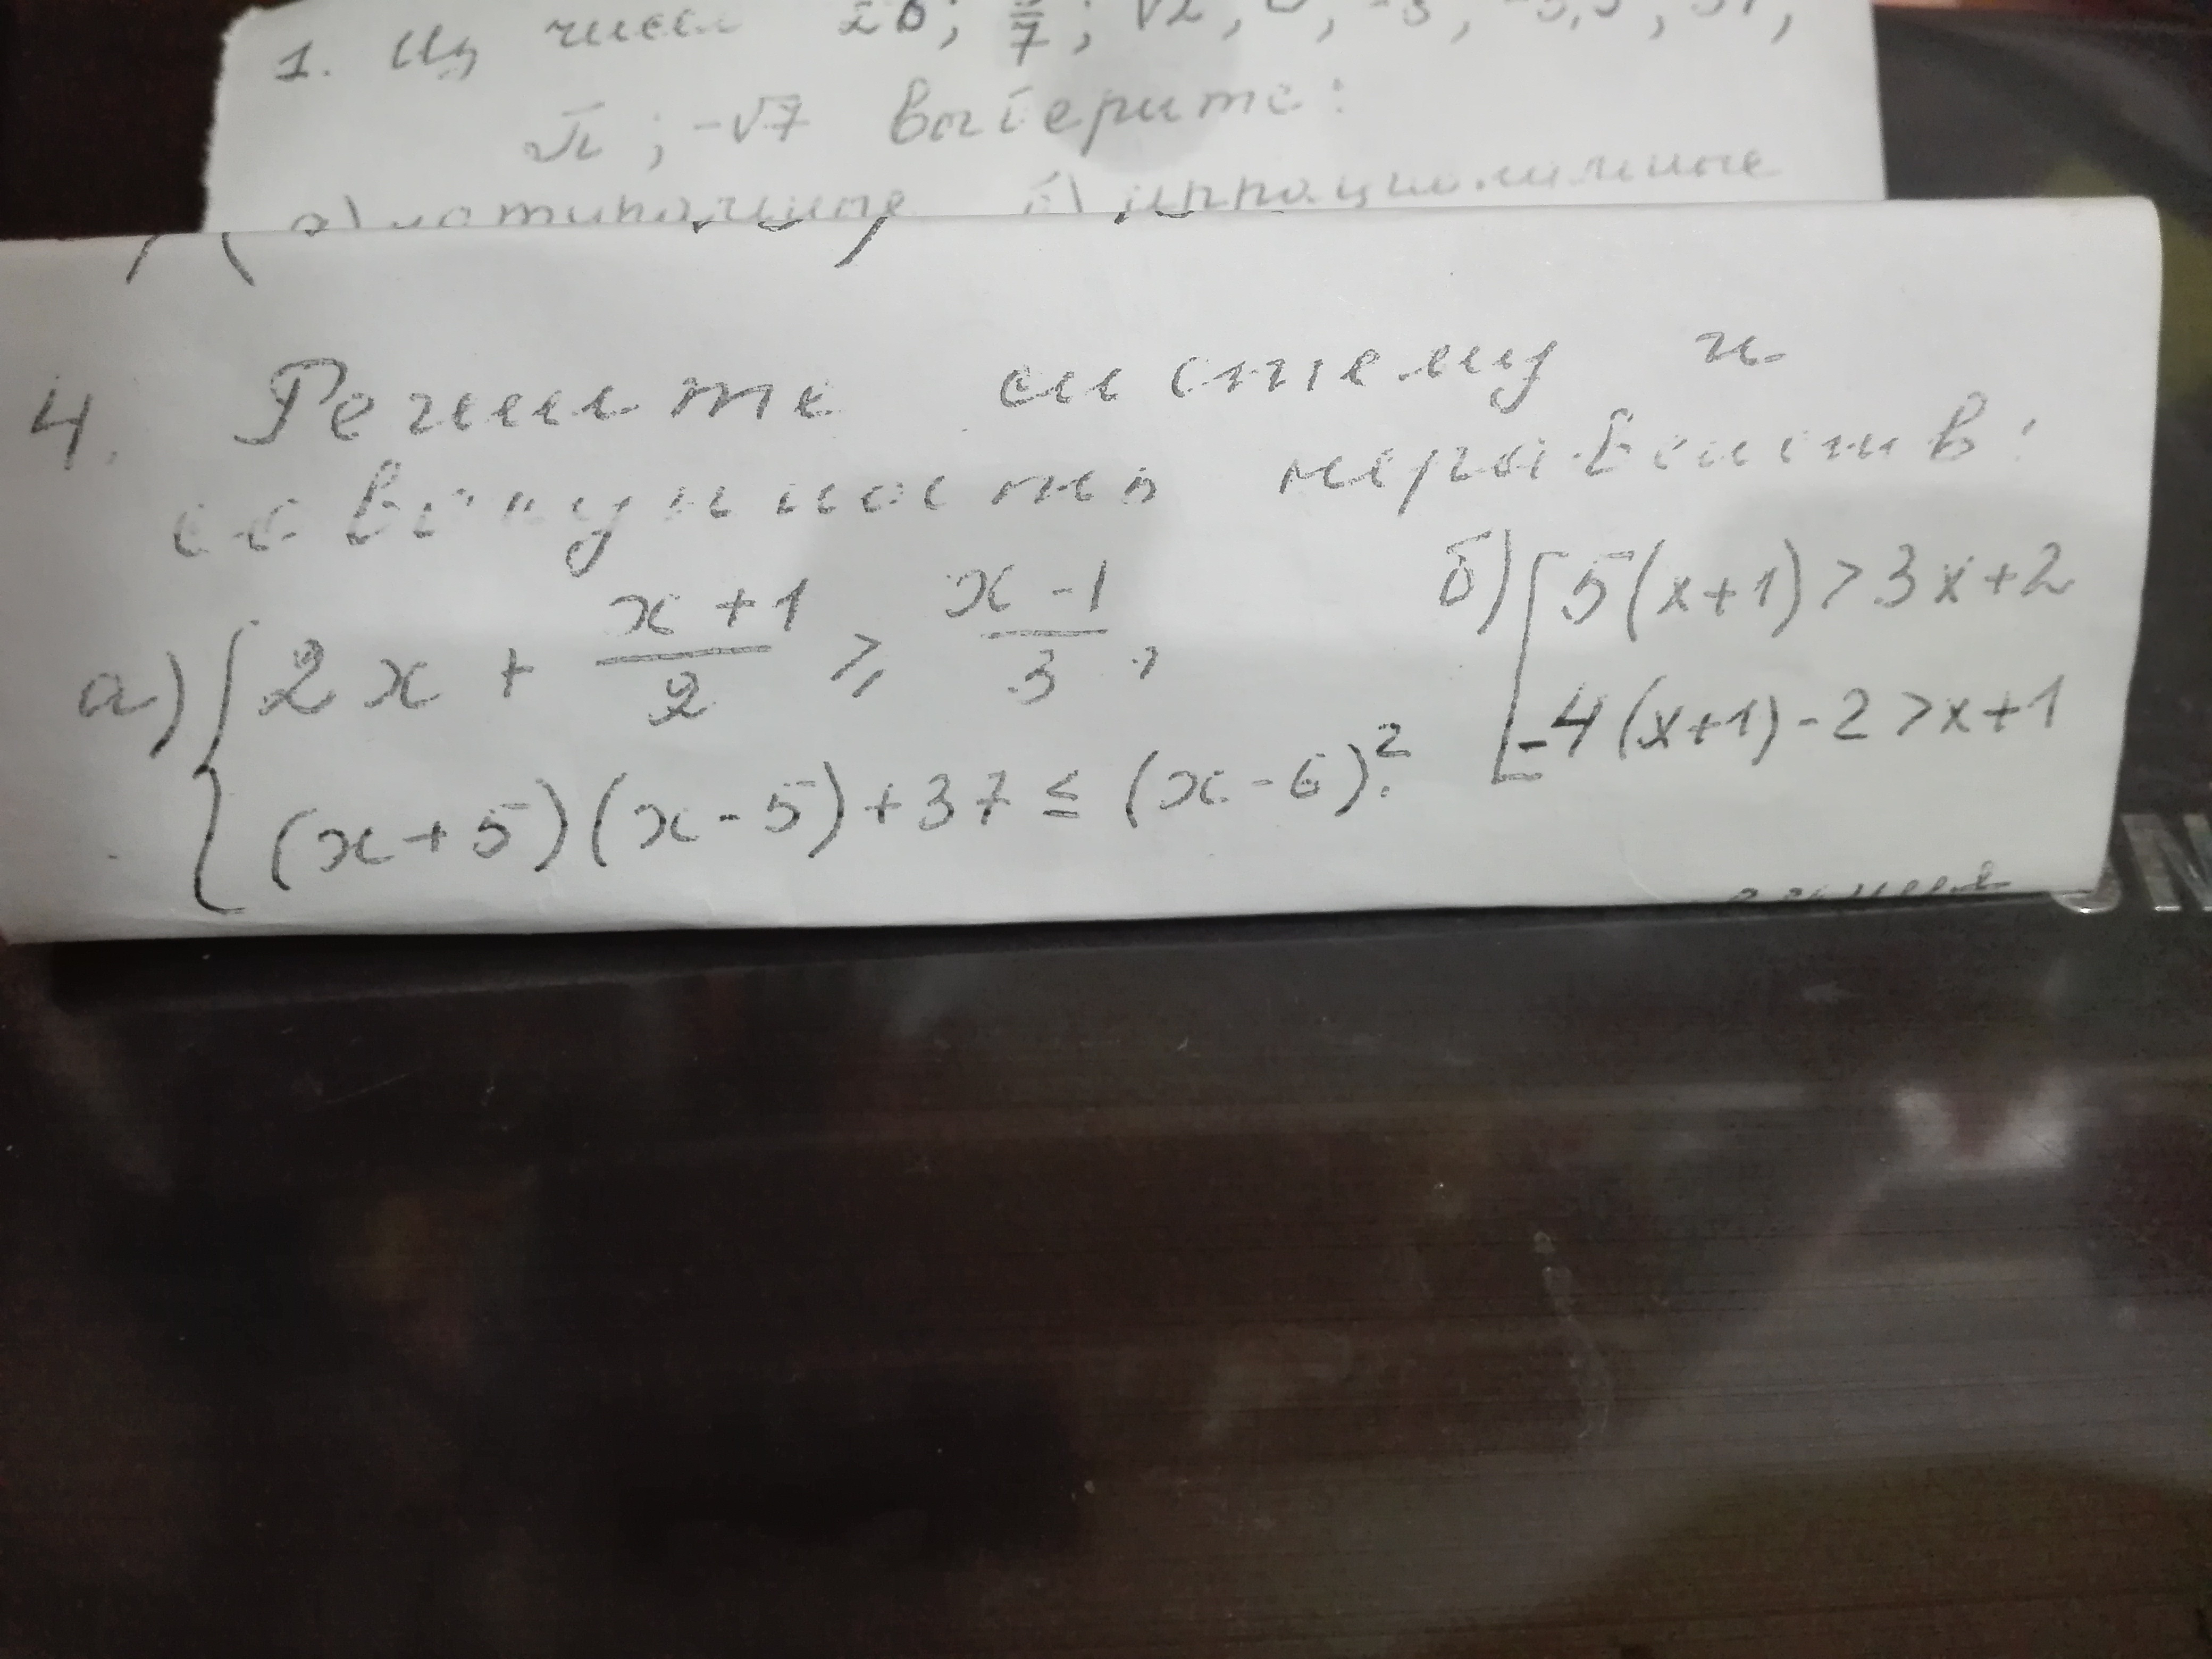 1. Из чисел 26; 7; √2,
√π; -√7 выберите:
б) иррациональные
4. Решите систему и
совокупность неравенств:
а) { 2x + (x+1)/2 ≥ (x-1)/3,
(x+5)(x-5)+37 ≤ (x-6)².
б) [ 5(x+1)>3x+2
-4(x+1)-2>x+1